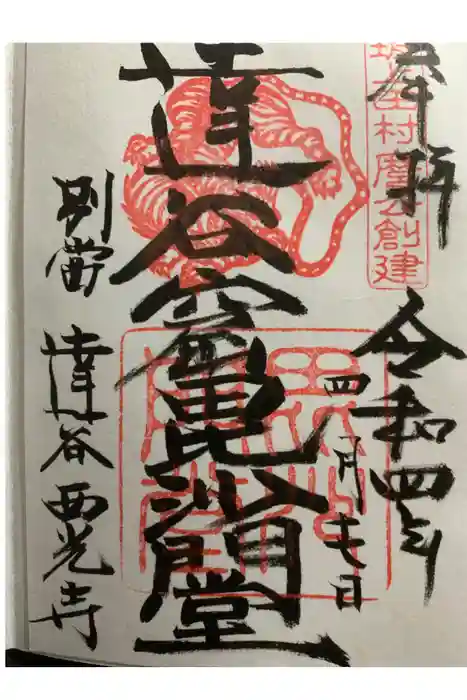 奉拝
令和四年
四月 日
田村麿公創建
達谷窟毘沙門堂
別當
達谷西光寺